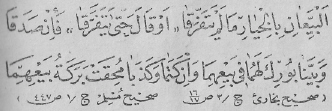 البَيِّعَانِ بِالْخِيَارِ مَا لَمْ يَتَفَرَّقَا، اَوْ قَالَ حَتّٰى يَتَفَرَّقَا، فَاِنْ صَدَقَا
وَبَيَّنَا بُوْرِكَ لَهُمَا فِيْ بَيْعِهِمَا وَاِنْ كَتَمَا وَكَذَبَا مُحِقَتْ بَرَكَةُ بَيْعِهِمَا
(صحیح بخاری ج/۳ ص ۱۶/۱۷ صحیح مسلم ج/۱ ص ۴۴۷)